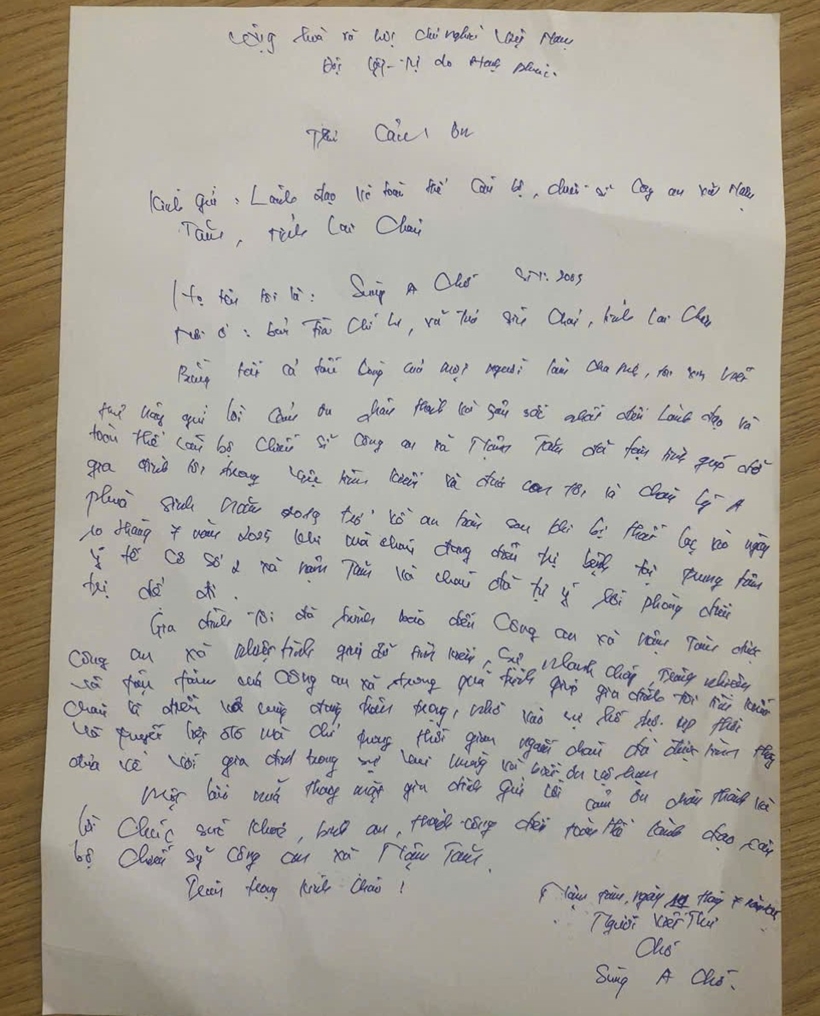 Cộng hoà xã hội chủ nghĩa Việt Nam
Độc lập - Tự do Hạnh phúc.
Thư Cảm ơn
Kính gửi: Lãnh đạo và toàn thể Cán bộ, chiến sĩ Công an xã Nậm
Tăm, tỉnh Lai Châu
Họ tên tôi là: Sùng A Chố SN: 2003
Nơi ở: bản Tìa Chí Lư, xã Sìn Chải, tỉnh Lai Châu
Bằng tất cả tấm lòng của một người làm cha mẹ, tôi xin viết
thư này gửi lời cảm ơn chân thành và sâu sắc nhất đến Lãnh đạo và
toàn thể cán bộ chiến sĩ Công an xã Nậm Tăm đã tận tình giúp đỡ
gia đình tôi trong việc tìm kiếm và đưa con tôi là cháu Lý A
Phừ sinh năm trở về an toàn sau khi bị thất lạc vào ngày
10 tháng 7 năm 2025 khi mà cháu đang điều trị bệnh tại trung tâm
y tế cơ sở 2 xã Nậm Tăm và cháu đã tự ý rời phòng điều
trị để đi.
Gia đình tôi đã trình báo đến Công an xã Nậm Tăm được
Công an xã nhiệt tình giúp đỡ tìm kiếm, Sự nhanh chóng, trách nhiệm
và tận tâm của Công an xã trong quá trình giúp gia đình tôi tìm kiếm
cháu là điều vô cùng đáng trân trọng, nhờ vào sự hỗ trợ kịp thời
và quyết liệt đó mà chỉ trong thời gian ngắn cháu đã được tìm thấy
đưa về với gia đình trong sự vui mừng và biết ơn vô hạn
Một lần nữa thay mặt gia đình gửi lời cảm ơn chân thành và
lời chúc sức khoẻ, bình an, thành công đến toàn thể lãnh đạo cán
bộ chiến sỹ công an xã Nậm Tăm.
Trân trọng kính chào!
Nậm Tăm, ngày tháng 7 năm
Người viết thư
Chố
Sùng A Chố.